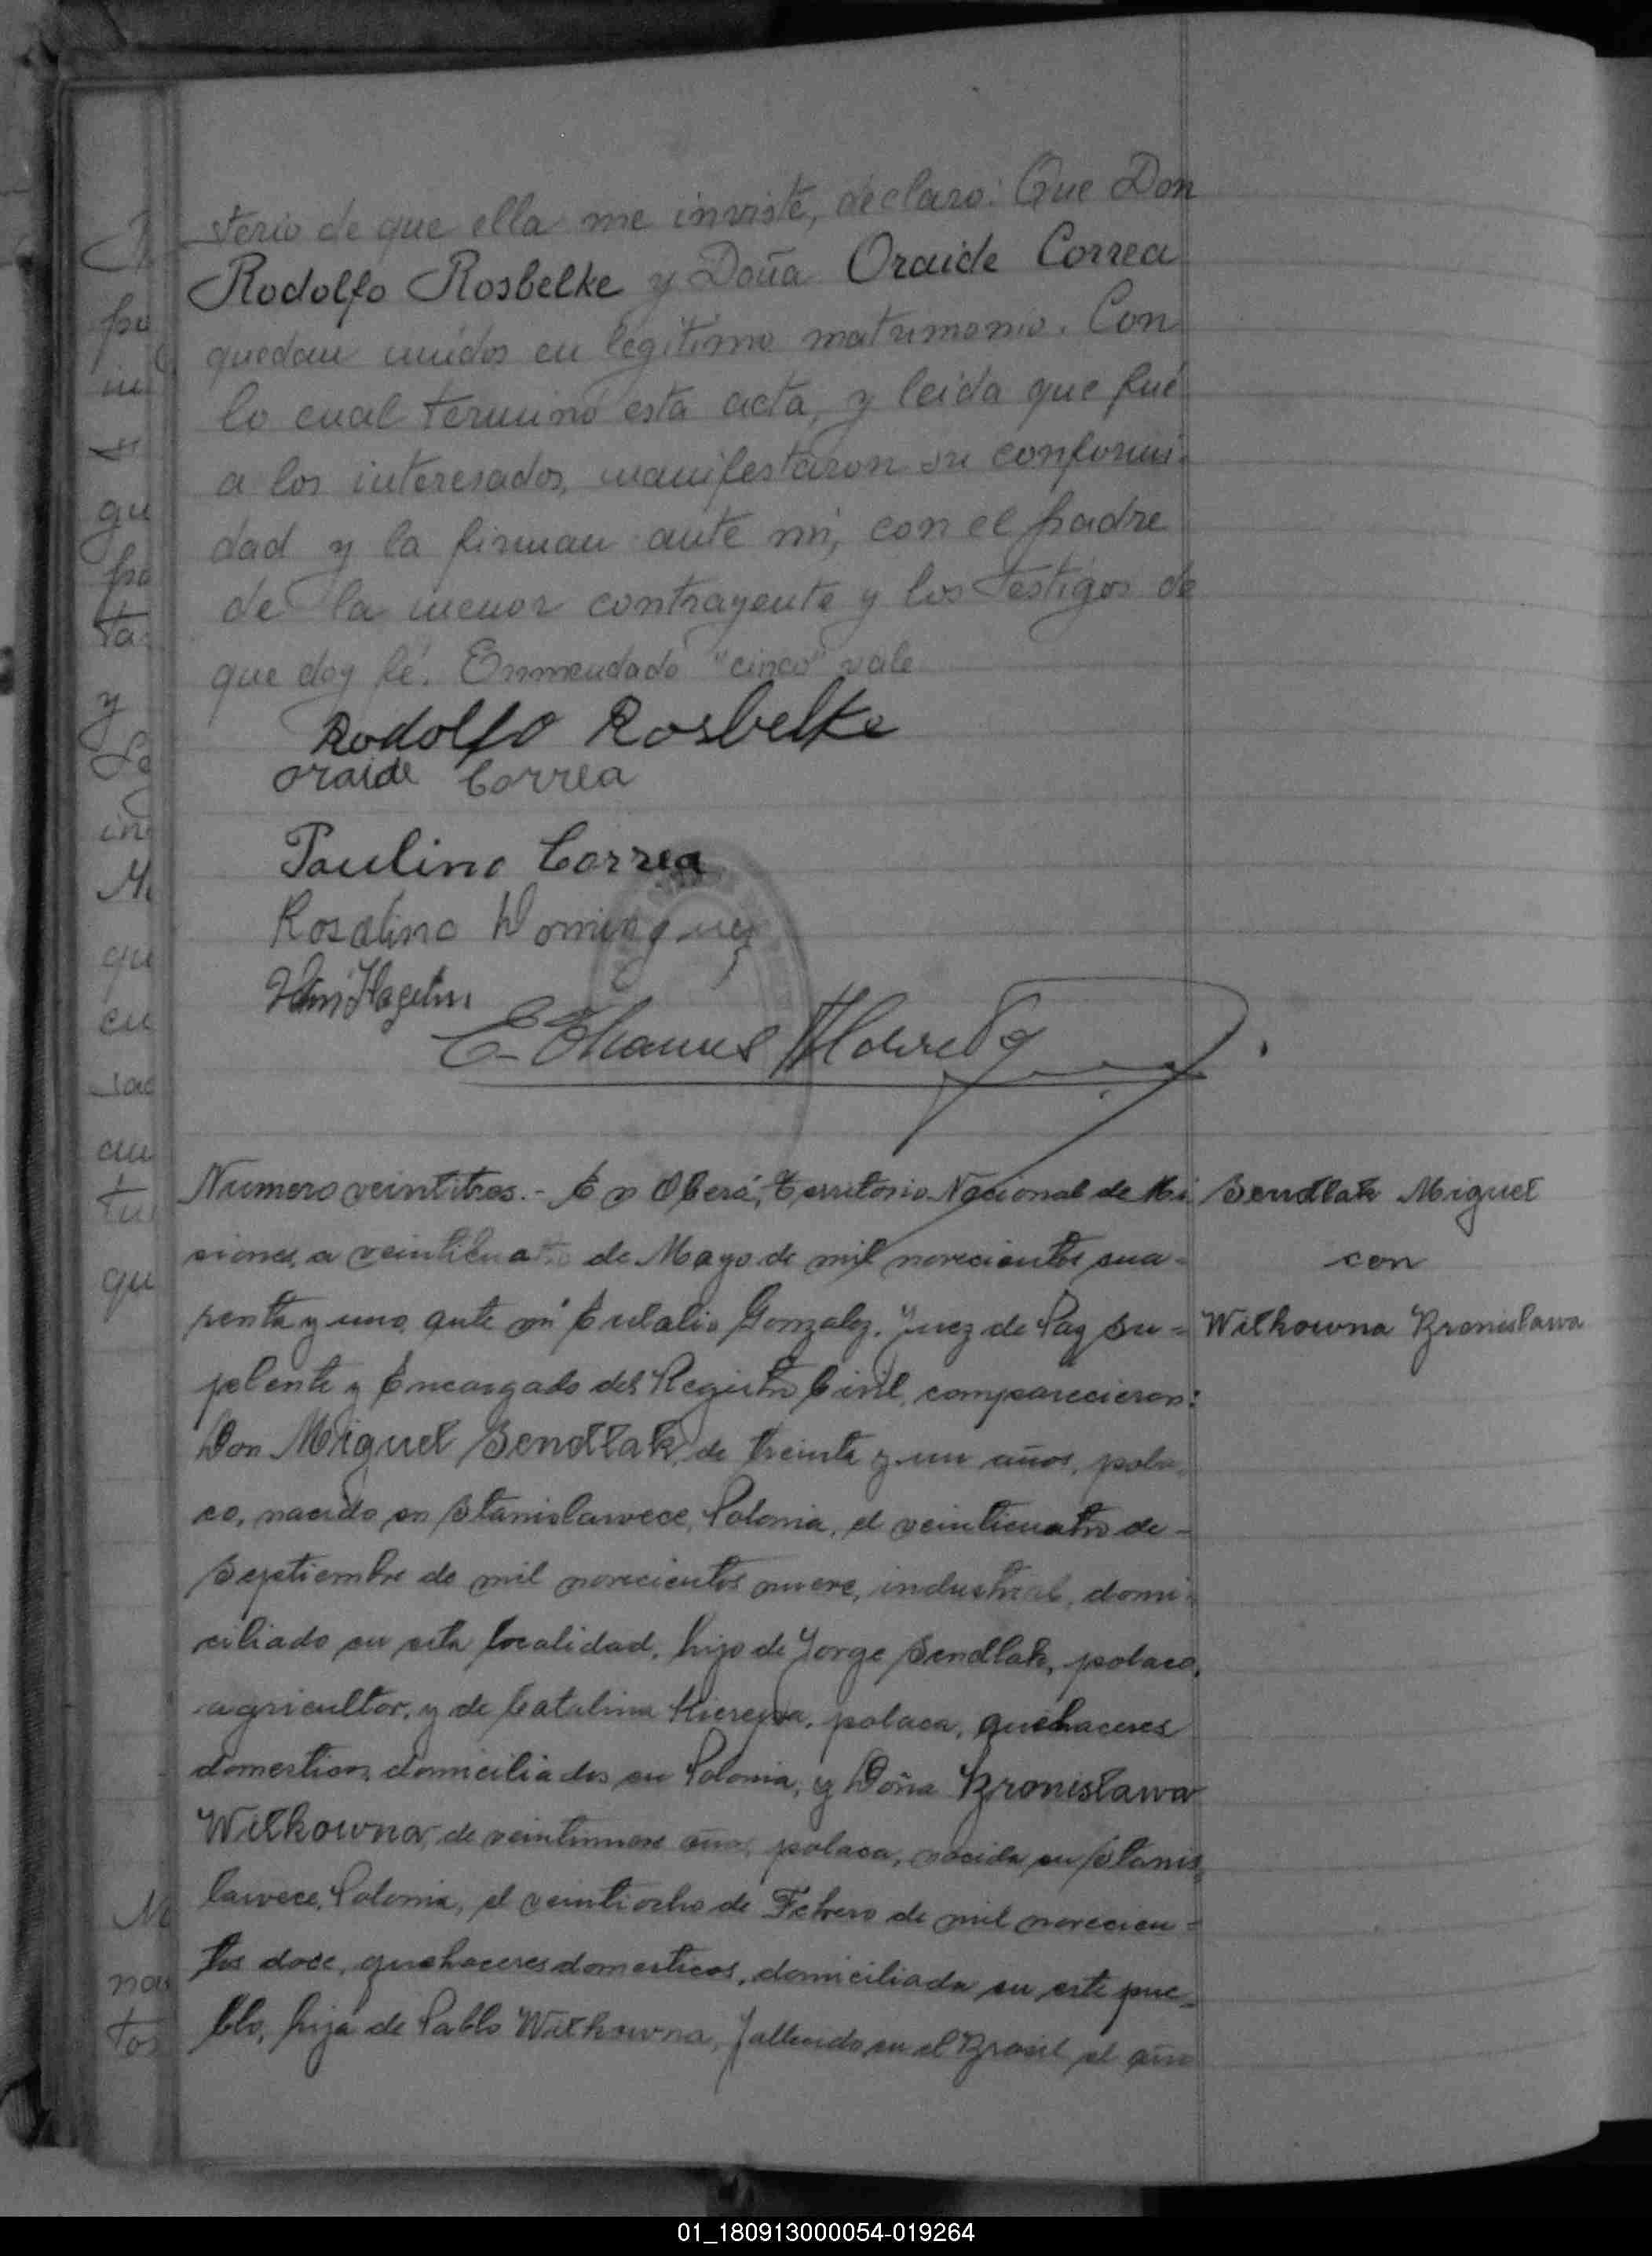 sterio de que ella me inviste, declaro: Que Don
Rodolfo Rosbelke y Doña Oraide Correa
quedan unidos en legitimo matrimonio. Con
lo cual terminó esta acta, y leida que fué
a los interesados, manifestaron su conformi-
dad y la firman ante mi, con el padre
de la menor contrayente y los testigos de
que doy fé. Enmendado "cinco" vale
Rodolfo Rosbelke
oraide Correa
Paulino Correa
Rosalino Dominguez
Numero veintitres.- En Oberá, Territorio Nacional de Mi
siones, a veinticuatro de Mayo de mil novecientos cua-
renta y uno, ante mi Eulalio Gonzalez, Juez de Paz Su-
plente y Encargado del Registro Civil, comparecieron:
Don Miguel Sendłak, de treinta y un años, pola-
co, nacido en Stanislawece, Polonia, el veinticuatro de-
Septiembre de mil novecientos nueve, industrial, domi-
ciliado en esta localidad, hijo de Jorge Sendlak, polaco,
agricultor, y de Catalina polaca, quehaceres
domesticos, domiciliados en Polonia, y Doña Bronisława
Wilkowna, de veintinueve años, polaca, nacida en Stanis-
lawece, Polonia, el veintiocho de Febrero de mil novecien-
tos doce, quehaceres domesticos, domiciliada en este pue-
blo, hija de Pablo Wilkowna, fallecido en el Brasil el año
Sendłak Miguel
con
Wilkowna Bronislawa
pa
in
gu
pa
ta
y
in
M
qu
cu
sad
au
tu
qu
nos
tos
01_180913000054-019264